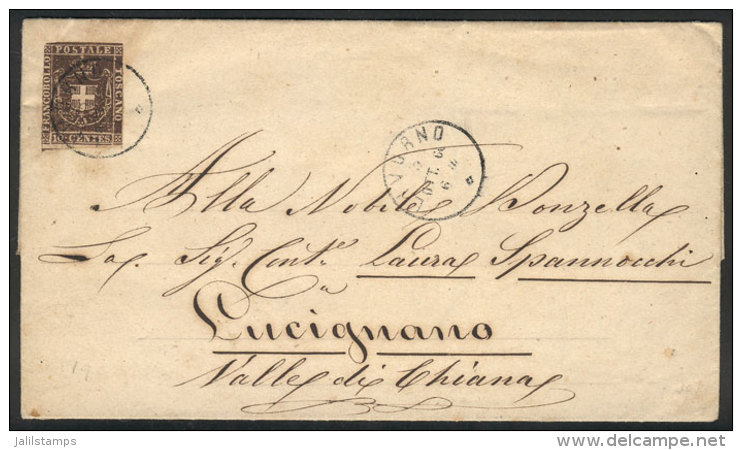 FRANCOBOLLO
POSTALE
TOSCANO
10 CENTES
LIVORNO
Alla Nobile Donzella
La Sig.ª Cont.ª Laura Spannocchi
Lucignano
Valle di Chiana
jalilstamps
delcampe.net